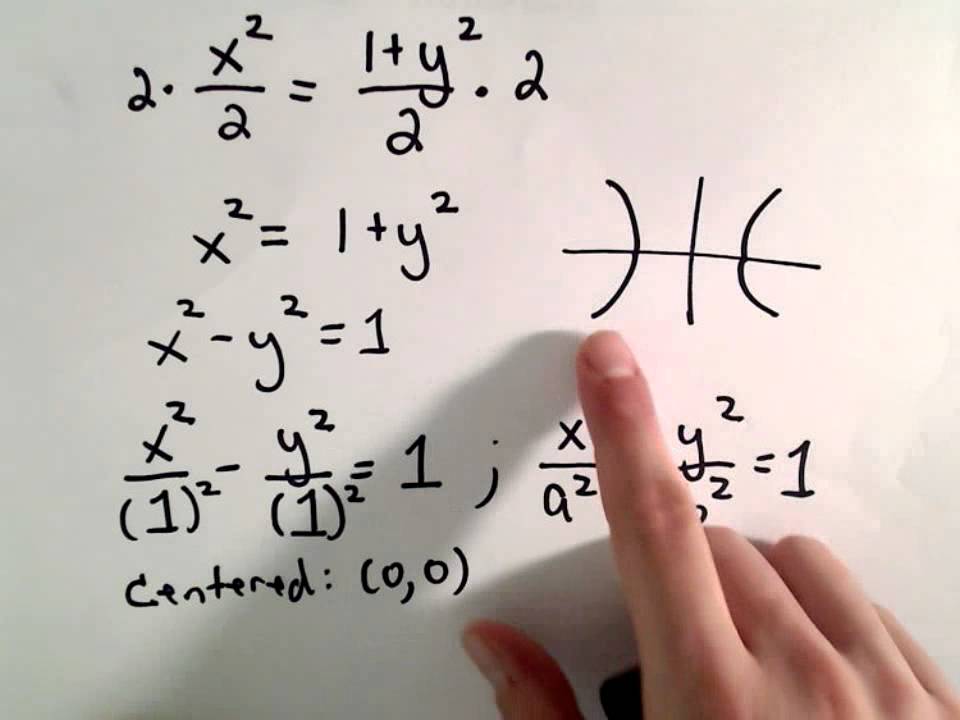 2 · x²/2 = (1+y²)/2 · 2
x² = 1+y²
x² - y² = 1
x²/(1)² - y²/(1)² = 1 ; x/a² y²/ ² = 1
Centered: (0,0)